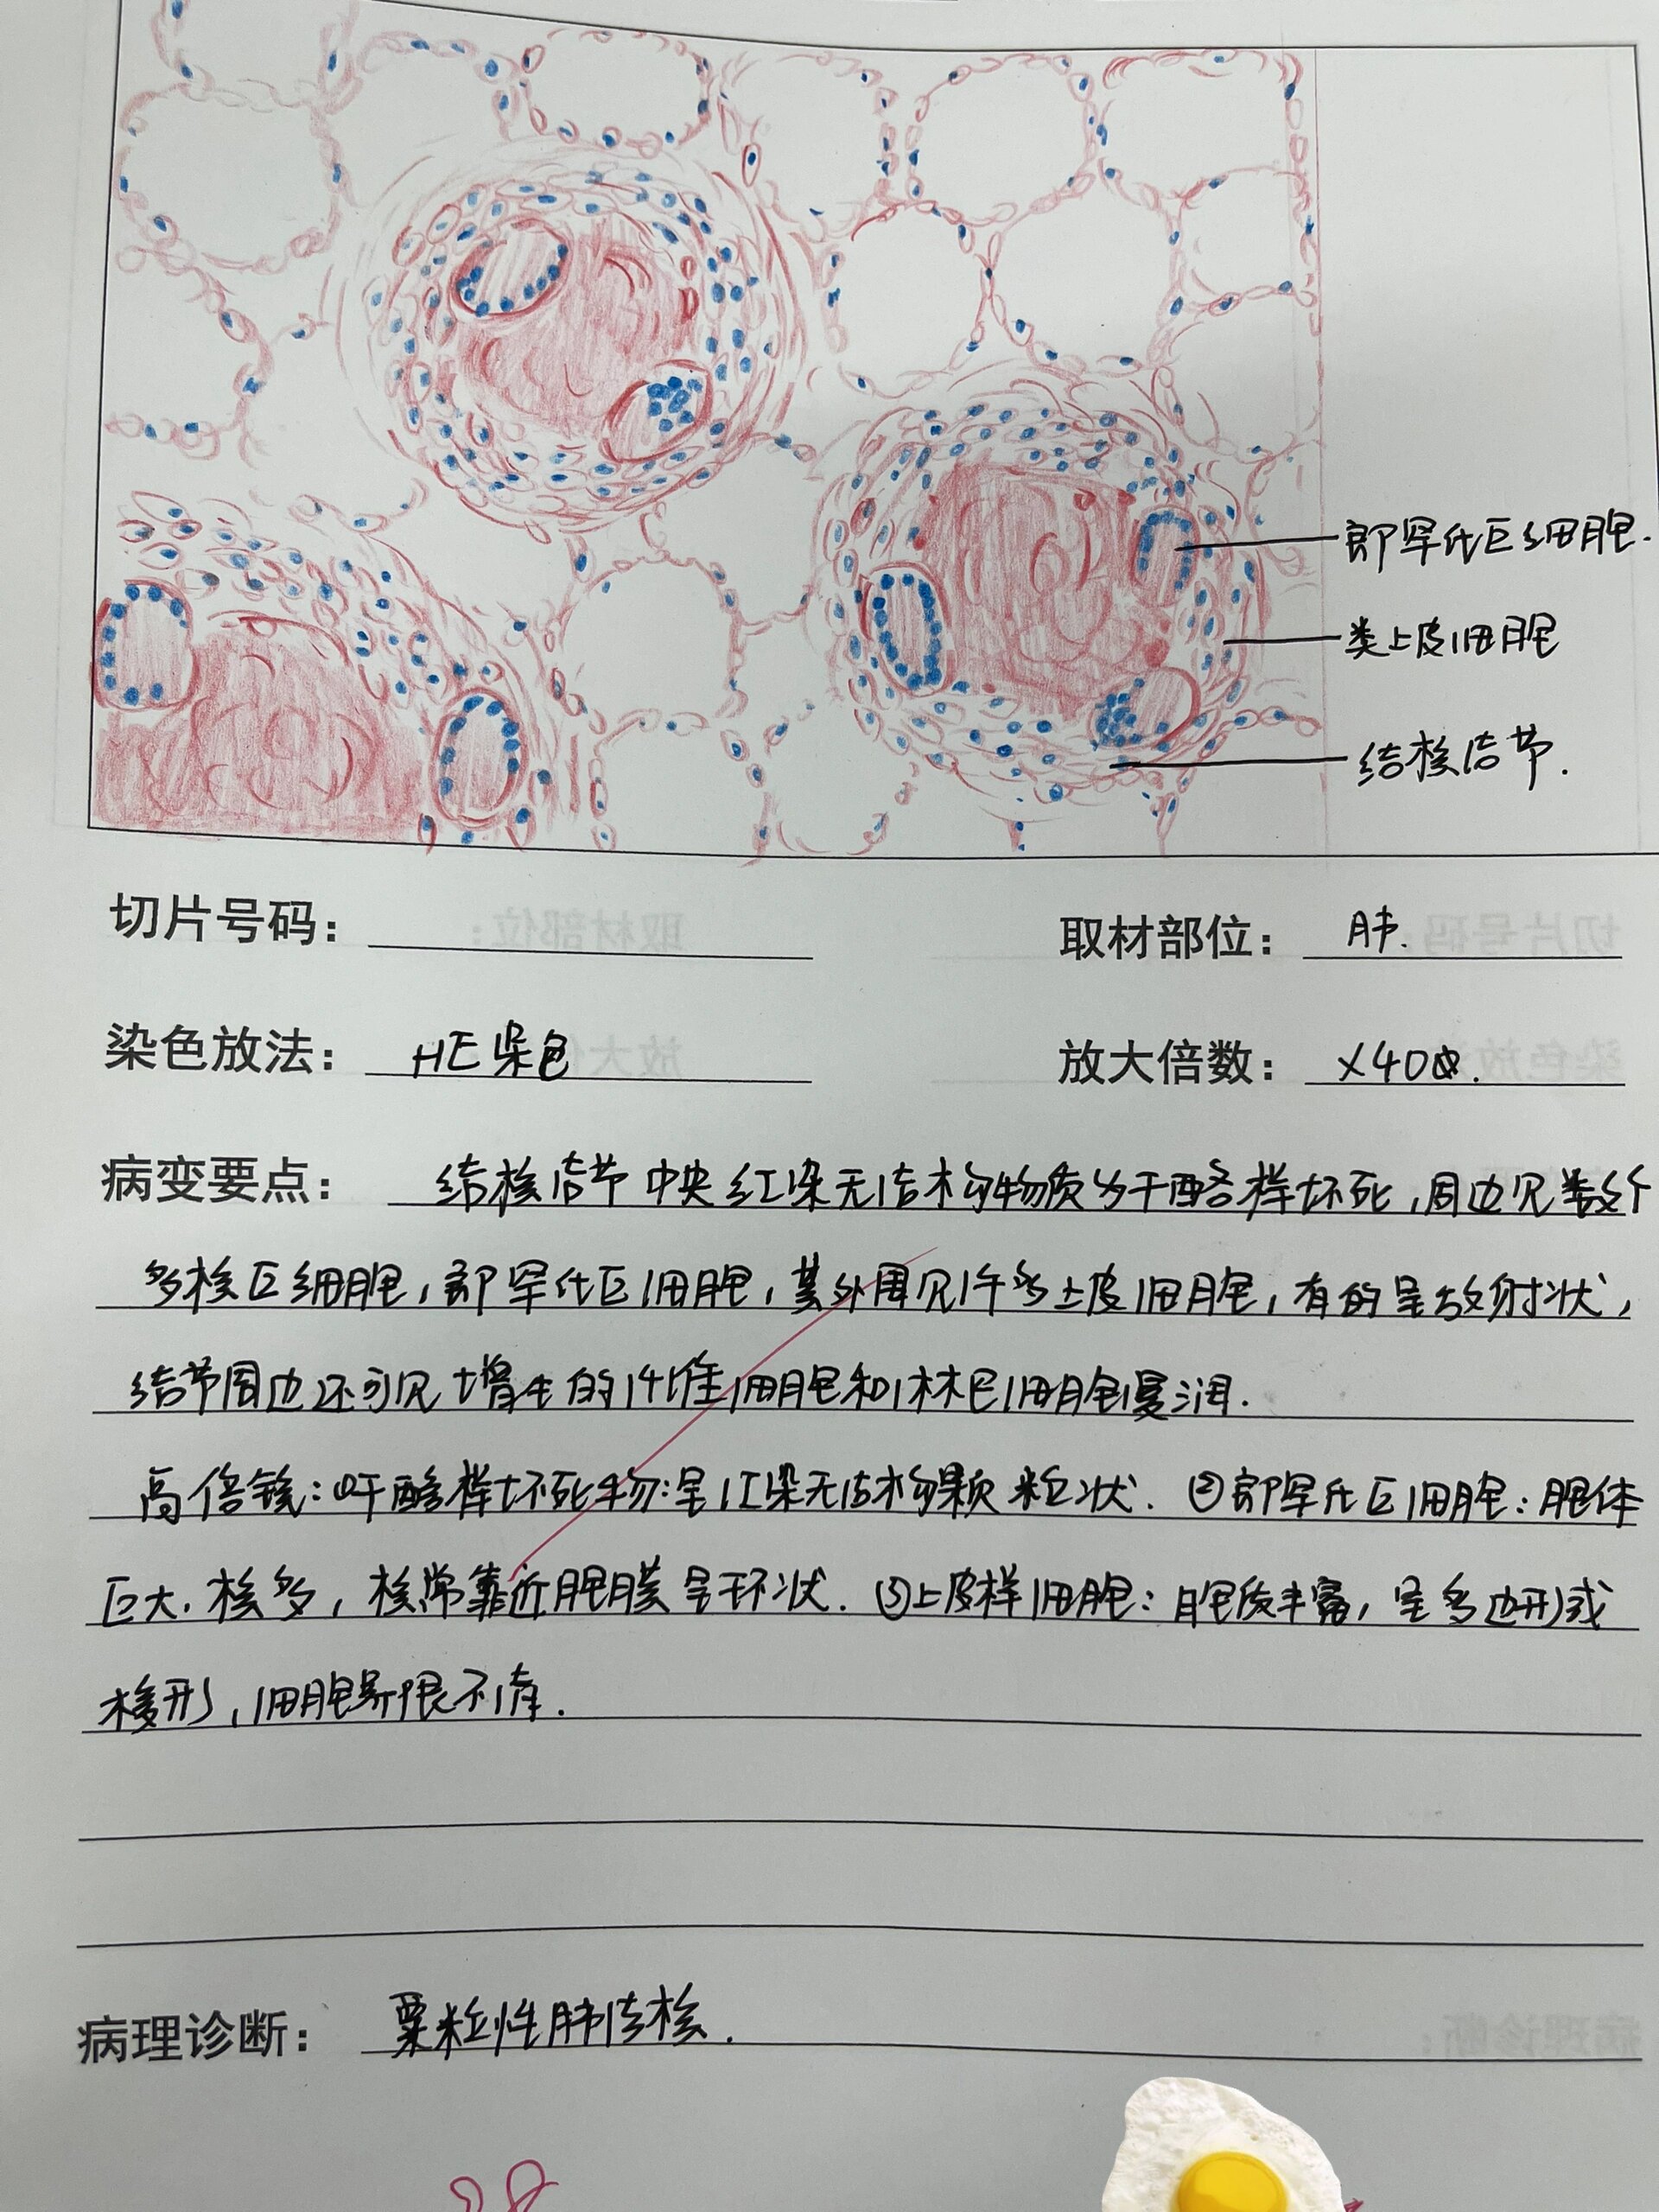 郎罕氏巨细胞.
类上皮细胞
结核结节.
切片号码：
取材部位： 肺.
染色放法： HE染色
放大倍数： ×400.
病变要点： 结核结节中央红染无结构物质为干酪样坏死,周边见数个
多核巨细胞,郎罕氏巨细胞,其外围见许多上皮细胞,有的呈放射状,
结节周边还可见增生的纤维细胞和淋巴细胞浸润.
高倍镜:①干酪样坏死物:呈红染无结构颗粒状. ②郎罕氏巨细胞:胞体
巨大.核多,核常靠近胞膜呈环状. ③上皮样细胞:胞质丰富,呈多边形或
梭形,细胞界限不清.
病理诊断： 粟粒性肺结核.